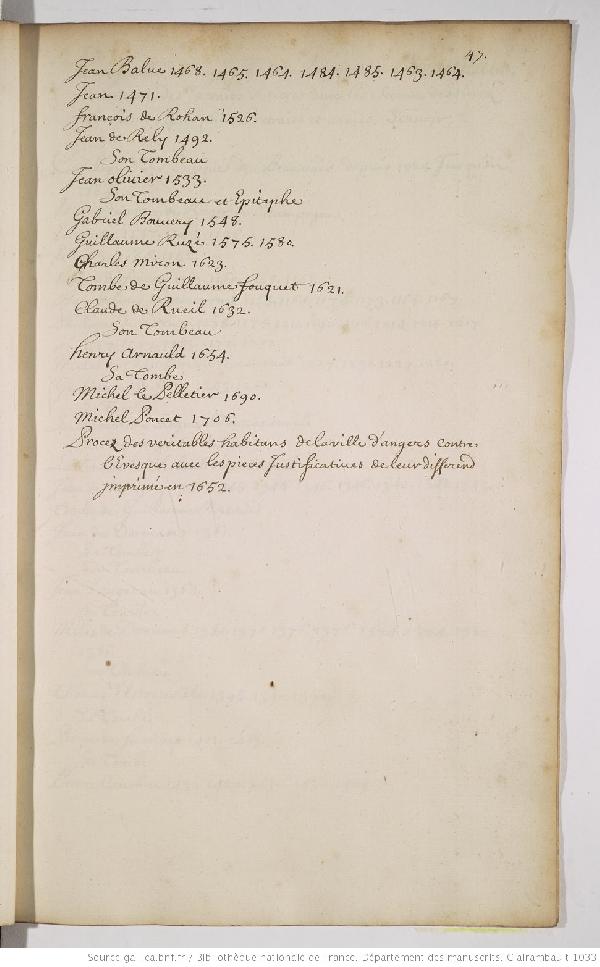 47.
Jean Balue 1468. 1465. 1464. 1484. 1485. 1463. 1464.
Jean 1471.
françois de Rohan 1526.
Jean de Rely 1492.
Son Tombeau
Jean olivier 1533.
Son Tombeau et Epitaphe
Gabriel Bouvery 1548.
Guillaume Ruzé 1575. 1580.
Charles Miron 1623.
Tombe de Guillaume fouquet 1621.
Claude de Rueil 1632.
Son Tombeau
henry Arnauld 1654.
Sa Tombe
Michel le Pelletier 1690.
Michel Poncet 1706.
Procez des veritables habitans de la ville d'angers contre
l'Evesque avec les pieces Justificatives de leur differend
jmprimé en 1652.
Source gallica.bnf.fr / Bibliothèque nationale de France. Département des manuscrits. Clairambault 1033